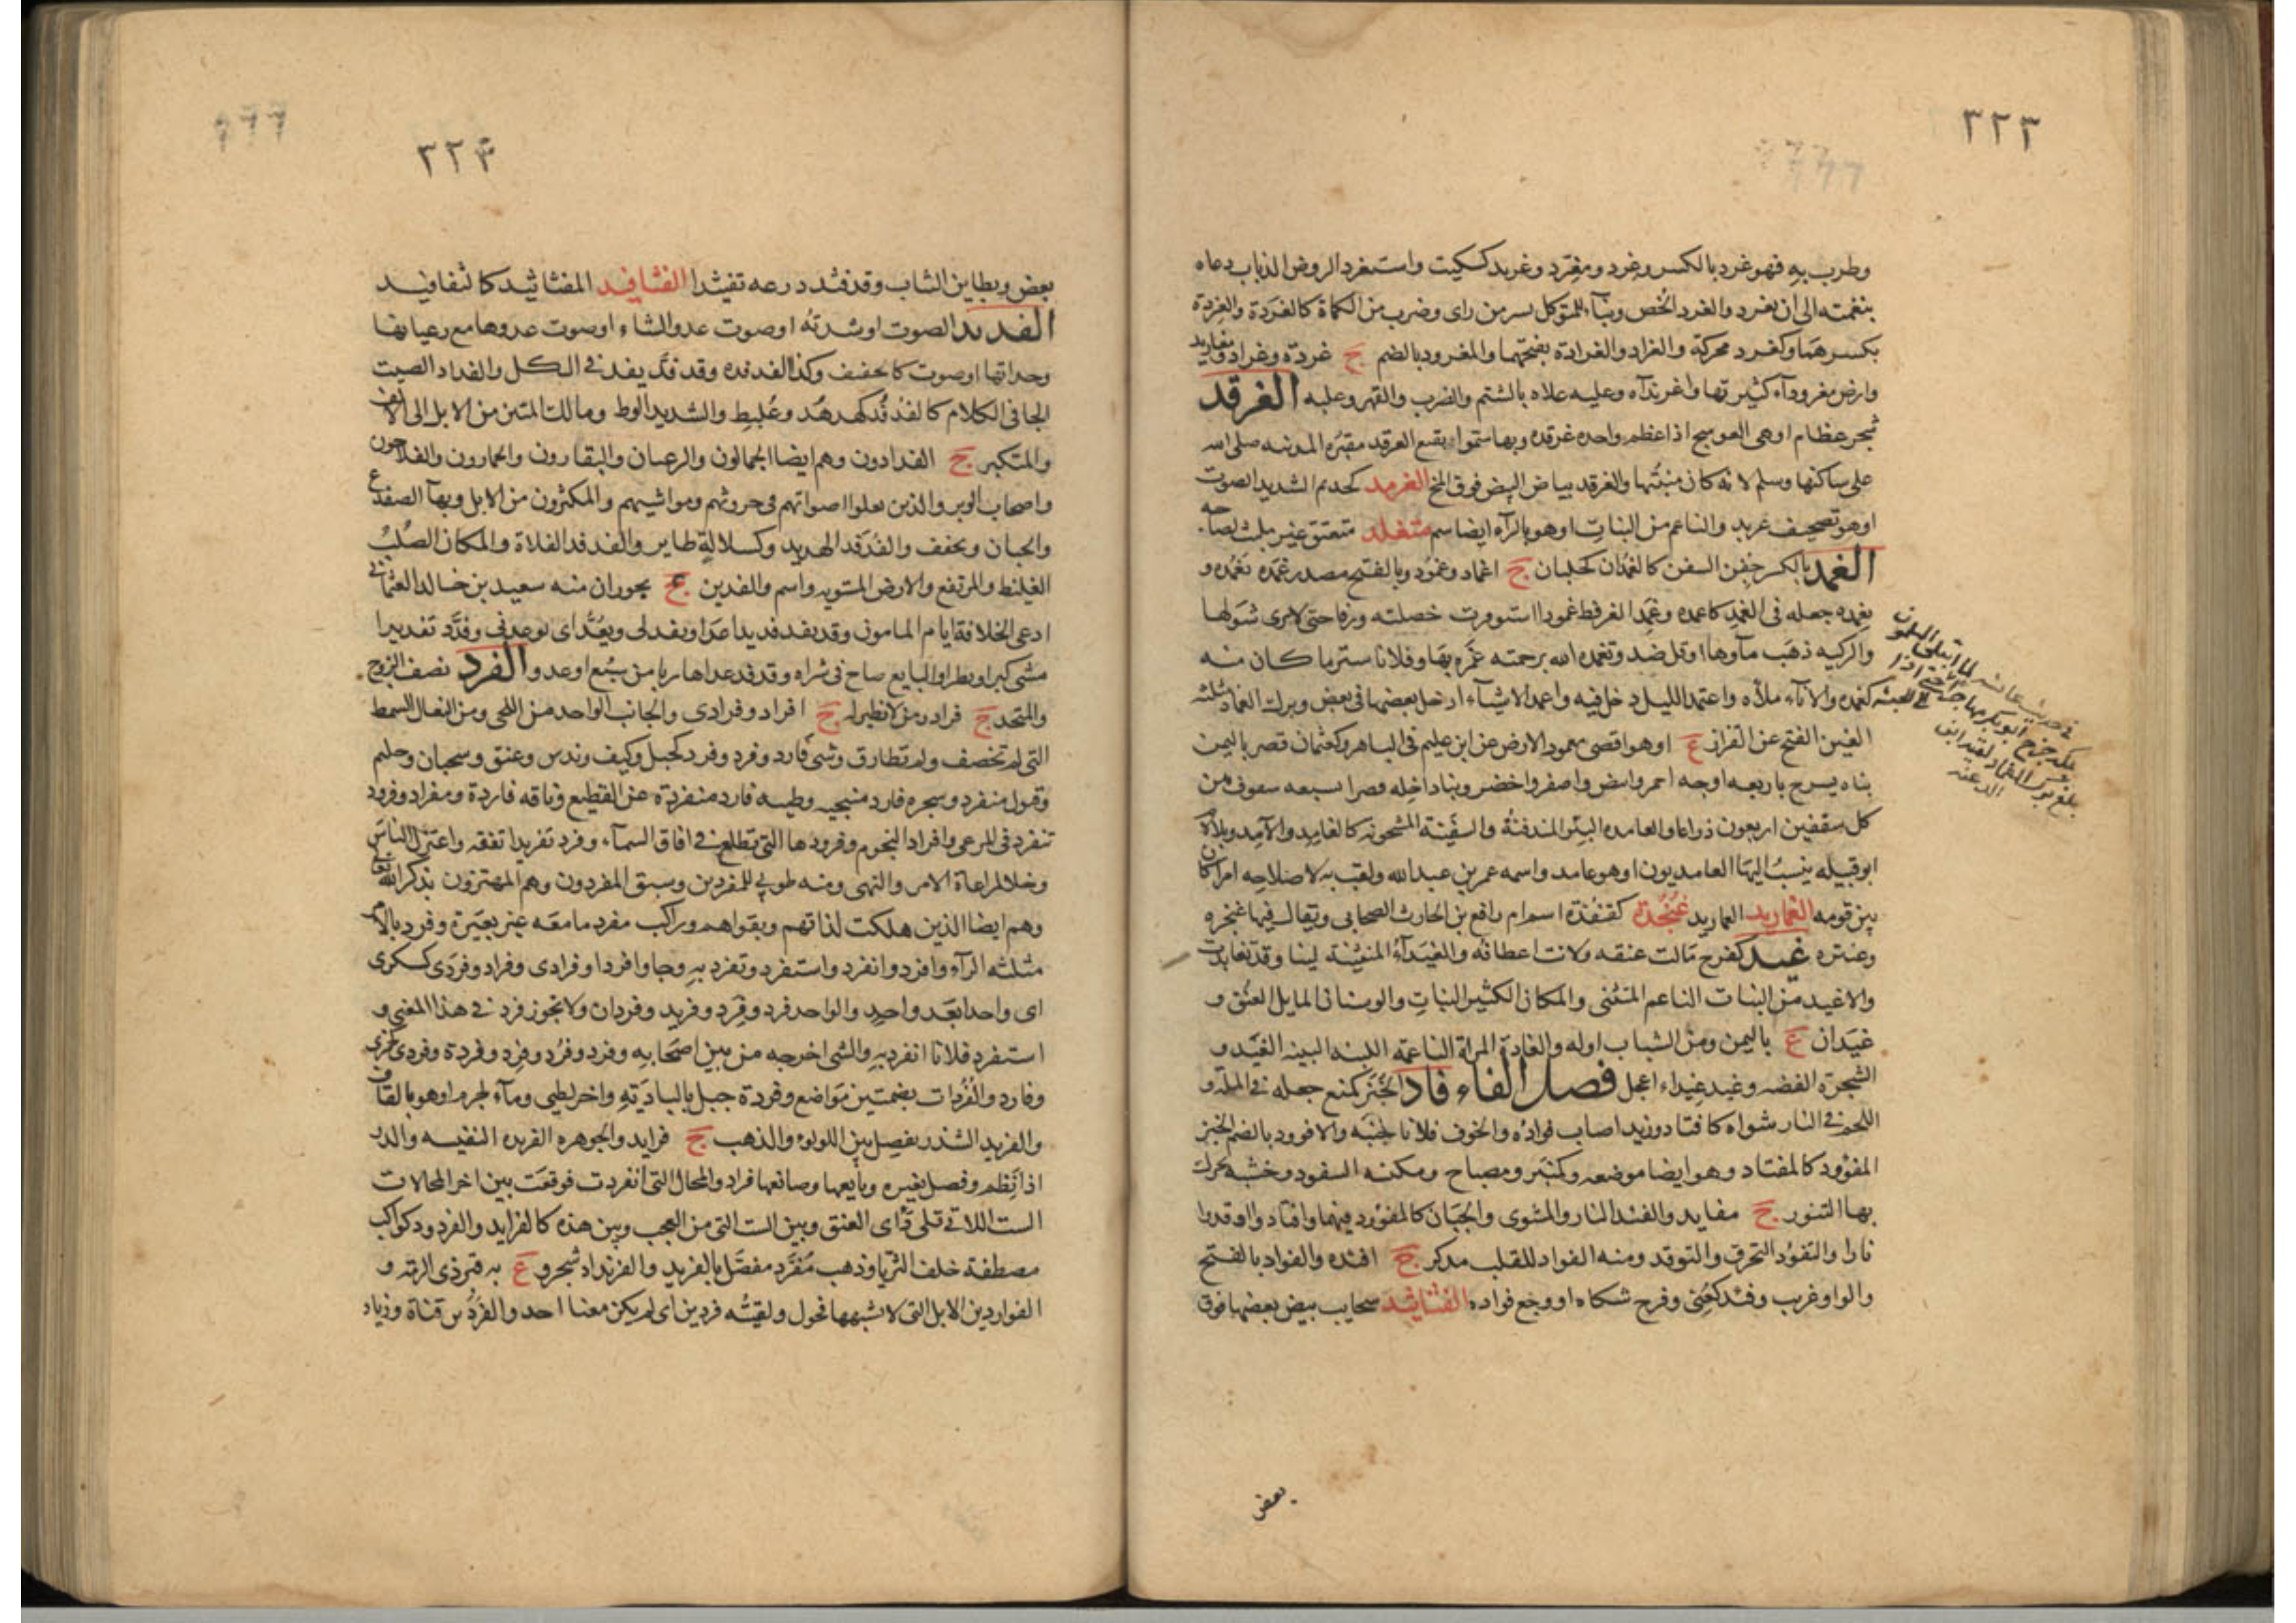 ٣٢٣
وطرب به فهو غرد بالكسر وغرد ومغرد وغريد كسكيت واستغرد الروض الذباب دعاه
بنغمته الى ان يغرد والغرد الخص وبناء للمتوكل بسر من راى وضرب من الكماة كالغردة والغردة
بكسرهما وكغرد محركة والغراد والغرادة بفتحهما والمغرود بالضم ج غردة وغراد ومغاريد
وارض مغروداء كثيرتها واغرنداه وعليه علاه بالشتم والضرب والقهر وغلبه الغرقد
شجر عظام او هي العوسج اذا عظم واحده غرقده وبها سموا وبقيع الغرقد مقبره المدينه صلى الله
على ساكنها وسلم لانه كان منبتها والغرقد بياض البيض فوق المخ الغرمد كحديم الشديد الصوت
او هو تصحيف غريد والناعم من النبات او هو بالراء ايضا سم متغلد متعتق غير ملتبس لصاحبه
الغمد بالكسر جفن السيف كالغمدان كجلبان ج اغماد وغمود وبالفتح مصدر غمده يغمده و
يغمده جعله فى الغمد كاغمده وغمد الغرفط غمودا استوفرت خصلته ورقا حتى لا يرى شوكها
والركيه ذهب ماوها او قل ضد وتغمده الله برحمته غمره بها وفلانا ستر ما كان منه
كغمده والاناء ملأه واغتمد الليل دخل فيه واغمد الاشياء ادخل بعضها فى بعض وبرك الغماد مثلثه
الغين الفتح عن القزاز ع او هو اقصى معمور الارض عن ابن عليم فى الباهر وكعثمان قصر باليمن
بناه يشرح باربعه اوجه احمر وابيض واصفر واخضر وبنا داخله قصرا بسبعه سقوف من
كل سقفين اربعون ذراعا والغامده البئر المندفنة والسفينة المشحونه كالغامد والآمد وبلا لام
ابو قبيله ينسب اليها الغامديون او هو غامد واسمه عمر بن عبدالله ولقب به لاصلاحه امرا كان
بين قومه الغماريد الغماريد غنجدة كقنفذة اسم ام رافع بن الحارث الصحابى ويقال فيها عنجره
وعنتره غيد كفرح مالت عنقه ولانت اعطافه والغيداء المتثنية لينا وقد تغايدت
والاغيد من النبات الناعم المتثنى والمكان الكثير النبات والوسنان المايل العنق و
غيدان ع باليمن ومن الشباب اوله والغادة المراة الناعمه اللينه البينه الغيد و
الشجرة الغضه وغيد غيداء اعجل فصل الفاء فاد الخبز كمنع جعله فى الملة و
اللحم فى النار شواه كافتاد وزيدا اصاب فواده والخوف فلانا جبنه والافود بالضم الخبز
المفؤود كالمفتاد وهو ايضا موضعه وكمنبر ومصباح ومكنسه السفود وخشبة يحرك
بها التنور ج مفايد والفئد النار والمشوى والجبان كالمفؤود فيهما وافتادوا اوقدوا
نارا والتفؤد التحرق والتوقد ومنه الفواد للقلب مذكر ج افئده والفواد بالفتح
والواو غريب وفئد كعنى وفرح شكاه او وجع فواده الفثاثيد سحايب بيض بعضها فوق
بعض
٣٢٤
بعض وبطاين الثياب وقد فثد درعه تفثيدا الفثافيد المفثاثيد كالثفافيد
الفديد الصوت او شدته او صوت عدو الشاء او صوت عدوها مع رعيانها
وحداتها او صوت كالحفيف وكذا الفدفده وقد فد يفد فى الكل والفداد الصيت
الجافى الكلام كالفدفد كهدهد وعلبط والشديد الوط ومالك المئين من الابل الى الالف
والمتكبر ج الفدادون وهم ايضا الجمالون والرعيان والبقارون والحمارون والفلاحون
واصحاب الوبر والذين تعلو اصواتهم فى حروثهم ومواشيهم والمكثرون من الابل وبهآ الضفدع
والجبان ويخفف والفدفد الهديد وكسلالة طاير والفدفد الفلاة والمكان الصلب
الغليظ والمرتفع والارض المستويه واسم والفدين ع بحوران منه سعيد بن خالد العثمانى
ادعى الخلافة ايام المامون وقد يفد فديدا عدا ويفد لى ويعد اى يوعدنى وفدد تفديدا
مشى كبرا وبطرا والبايع صاح فى شراه وقد فد عدا هاربا من سبع او عدو الفرد نصف الزوج
والمتحد ج فراد ومن لا نظير له ج افراد وفرادى والجانب الواحد من اللحى ومن النعال السمط
التى لم تخصف ولم تطارق وشى فارد وفرد وفرد كجبل وكتف وندس وعنق وسحبان وحليم
وقبول منفرد وسجره فارد متنحيه وظبيه فارد منفردة عن القطيع وناقه فاردة ومفراد وفرود
تنفرد فى المرعى وافراد النجوم وفرودها التى تطلع فى افاق السماء وفرد تفريدا تفقه واعتزل الناس
وخلا لمراعاة الامر والنهى ومنه طوبى للمفردين وسبق المفردون وهم المهتزون بذكر الله تعالى
وهم ايضا الذين هلكت لذاتهم وبقوا هم وراكب مفرد ما معه غير بعيره وفرد بالامر
مثلثه الراء وافرد وانفرد واستفرد وتفرد به وجاوا فردا وفرادى وفراد وفردى كسكرى
اى واحدا بعد واحد والواحد فرد وفرد وفريد وفردان ولا يجوز فرد فى هذا المعنى و
استفرد فلانا انفرد به والشى اخرجه من بين اصحابه وفرد وفرد وفرد وفردة وفردى كجمزى
وفارد والفردات بضمتين مواضع وفردة جبل بالبادية واخر لطيى ومآء لجرم او هو بالقاف
والفريد الشذر يفصل بين اللولوء والذهب ج فرايد والجوهره الفريده النفيسه والدر
اذا نظم وفصل بغيره وبايعها وصانعها فراد والمحال التى انفردت فوقعت بين اخر المحالات
الست اللاتى تلى دأى العنق وبين الست التى من العجب وبين هذه كالفرايد والفرود كواكب
مصطفة خلف الثريا وذهب مفرد مفصل بالفريد والفرنداد شجر و ع به قبر ذى الرمه و
الفوارد من الابل التى لا تشبهها فحول ولقيته فردين اى لم يكن معنا احد والفرد بن قناة وزياد